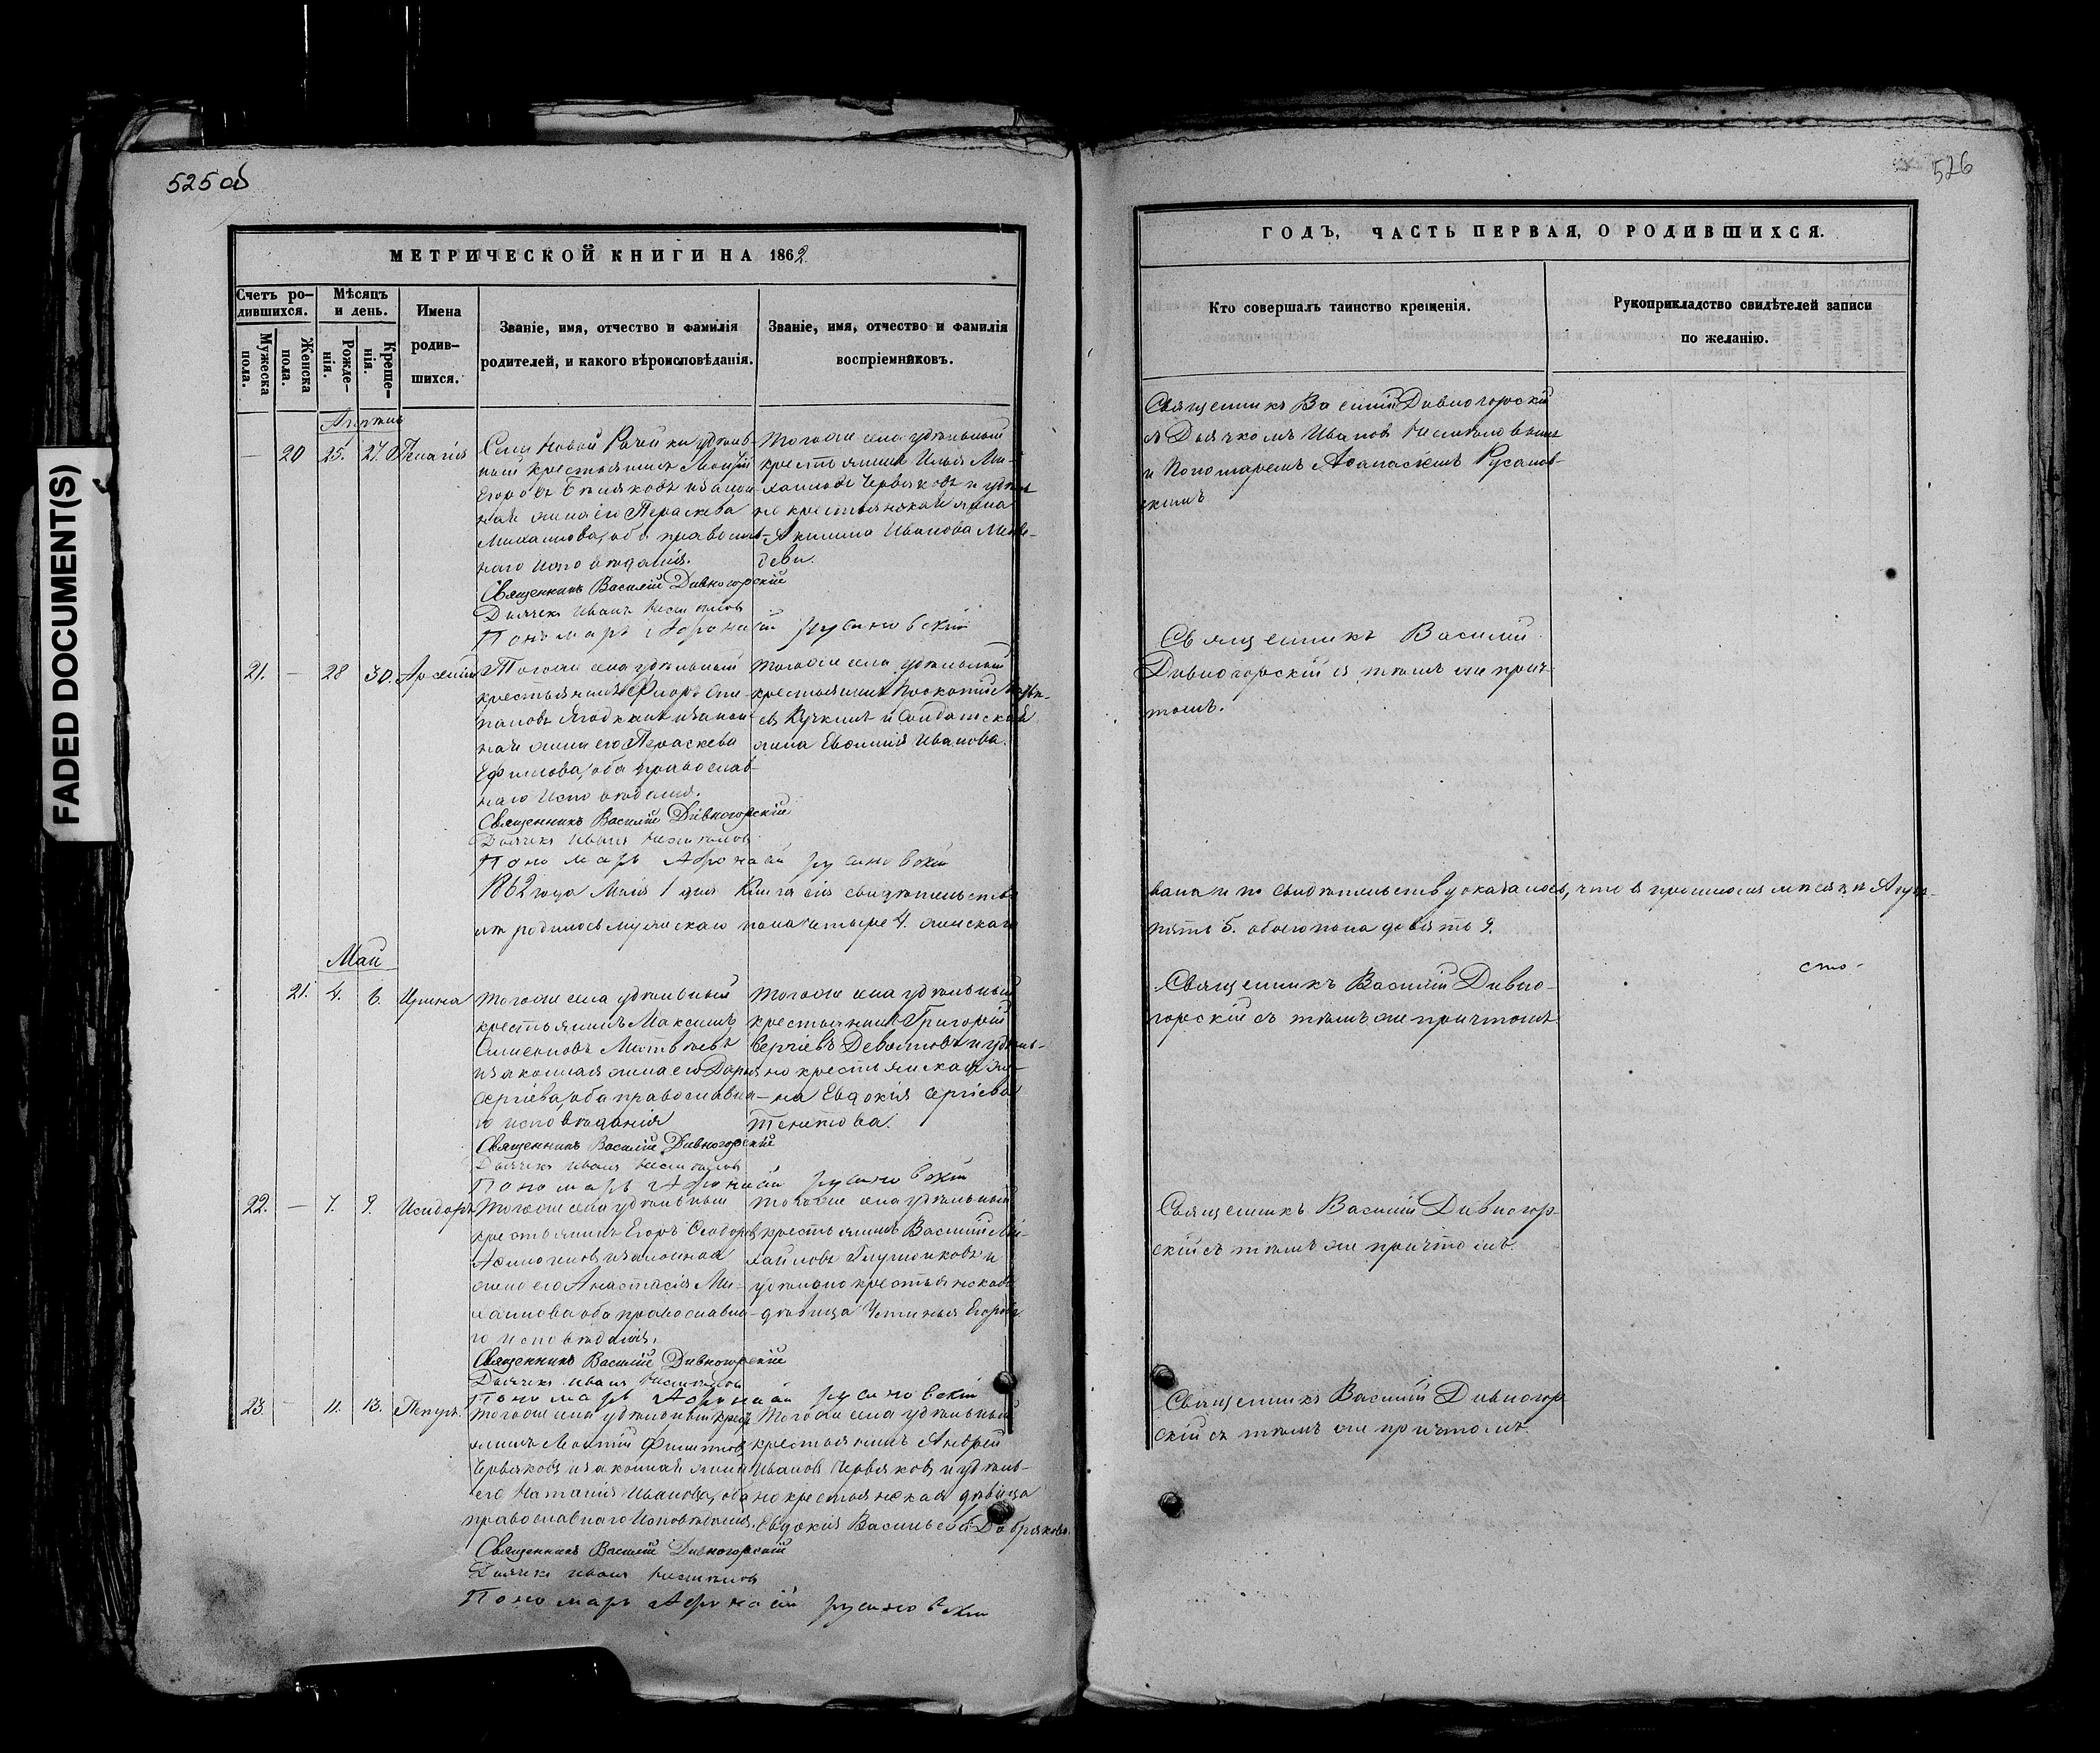 525 об
526
FADED DOCUMENT(S)
МЕТРИЧЕСКОЙ КНИГИ НА 1862
Счетъ ро-
дившихся.
Мужеска
пола.
Женска
пола.
Мѣсяцъ
и день.
Рожде-
нія.
Креще-
нія.
Имена
родив-
шихся.
Званіе, имя, отчество и фамилія
родителей, и какого вѣроисповѣданія.
Званіе, имя, отчество и фамилія
воспріемниковъ.
— 20 25. 27.
Села Новой Рачейки удѣль-
ный крестьянинъ
Егоровъ и закон-
ная жена его Параскева
Михаилова, оба православ-
наго исповѣданія.
Тогоже села удѣльный
крестьянинъ Илья Ми-
хаиловъ Червяковъ и удѣль-
но крестьянская жена
Акилина Иванова Медве-
дева.
Священникъ Василій Дивногорскій
Дьячекъ Иванъ
Пономарь Афонасій Русановскій
21. — 28 30. Арсеній
Тогоже села удѣльный
крестьянинъ Фиоръ Сте-
пановъ Ягодкинъ и закон-
ная жена его Параскева
Ефимова, оба православ-
наго исповѣданія.
Тогоже села удѣльный
крестьянинъ
Кучкинъ и Солдатская
жена Евфимія Иванова.
Священникъ Василій Дивногорскій
Дьячекъ Иванъ
Пономарь Афонасій Русановскій
1862 года Маія 1 дня Книга сія свидѣтельство
родилось мужескаго пола четыре 4. женскаго
Май
21. 4. 6. Ирина
Тогоже села удѣльный
крестьянинъ Максимъ
Матвѣевъ
и законная жена его Дарья
Сергіева, оба православна-
го исповѣданія
Тогоже села удѣльный
крестьянинъ Григорій
Сергіевъ и удѣль-
но крестьянская же-
на Евдокія Сергіева
Священникъ Василій Дивногорскій
Дьячекъ Иванъ
Пономарь Афонасій Русановскій
22. — 7. 9. Исидоръ
Тогоже села удѣльный
крестьянинъ Егоръ Ѳеодоровъ
и законная
жена его Анастасія Ми-
хаилова оба православна-
го исповѣданія.
Тогоже села удѣльный
крестьянинъ Василій Ми-
хайловъ и
удѣльно крестьянская
дѣвица Устинья Егорова
Священникъ Василій Дивногорскій
Дьячекъ Иванъ
Пономарь Афонасій Русановскій
23. — 11. 13.
Тогоже села удѣльный крест-
янинъ
Червяковъ и законная жена
его Наталія Иванова, оба
православнаго исповѣданія.
Тогоже села удѣльный
крестьянинъ Андрей
Ивановъ Червяковъ и удѣль-
но крестьянская дѣвица
Евдокія Васильева Добрякова.
Священникъ Василій Дивногорскій
Дьячекъ Иванъ
Пономарь Афонасій Русановскій
ГОДЪ, ЧАСТЬ ПЕРВАЯ, О РОДИВШИХСЯ.
Кто совершалъ таинство крещенія.
Рукоприкладство свидѣтелей записи
по желанію.
Священникъ Василій Дивногорскій
съ Дьячкомъ Иваномъ
и Пономаремъ Аѳанасіемъ Русанов-
скимъ
Священникъ Василій
Дивногорскій съ тѣмъ же прич-
томъ.
вана и по свидѣтельству оказалось, что в прошломъ мѣсяцѣ
пять 5. обоего пола девять 9.
Священникъ Василій Дивно-
горскій съ тѣмъ же причтомъ
Священникъ Василій Дивногор-
скій съ тѣмъ же причтомъ.
Священникъ Василій Дивногор-
скій съ тѣмъ же причтомъ.